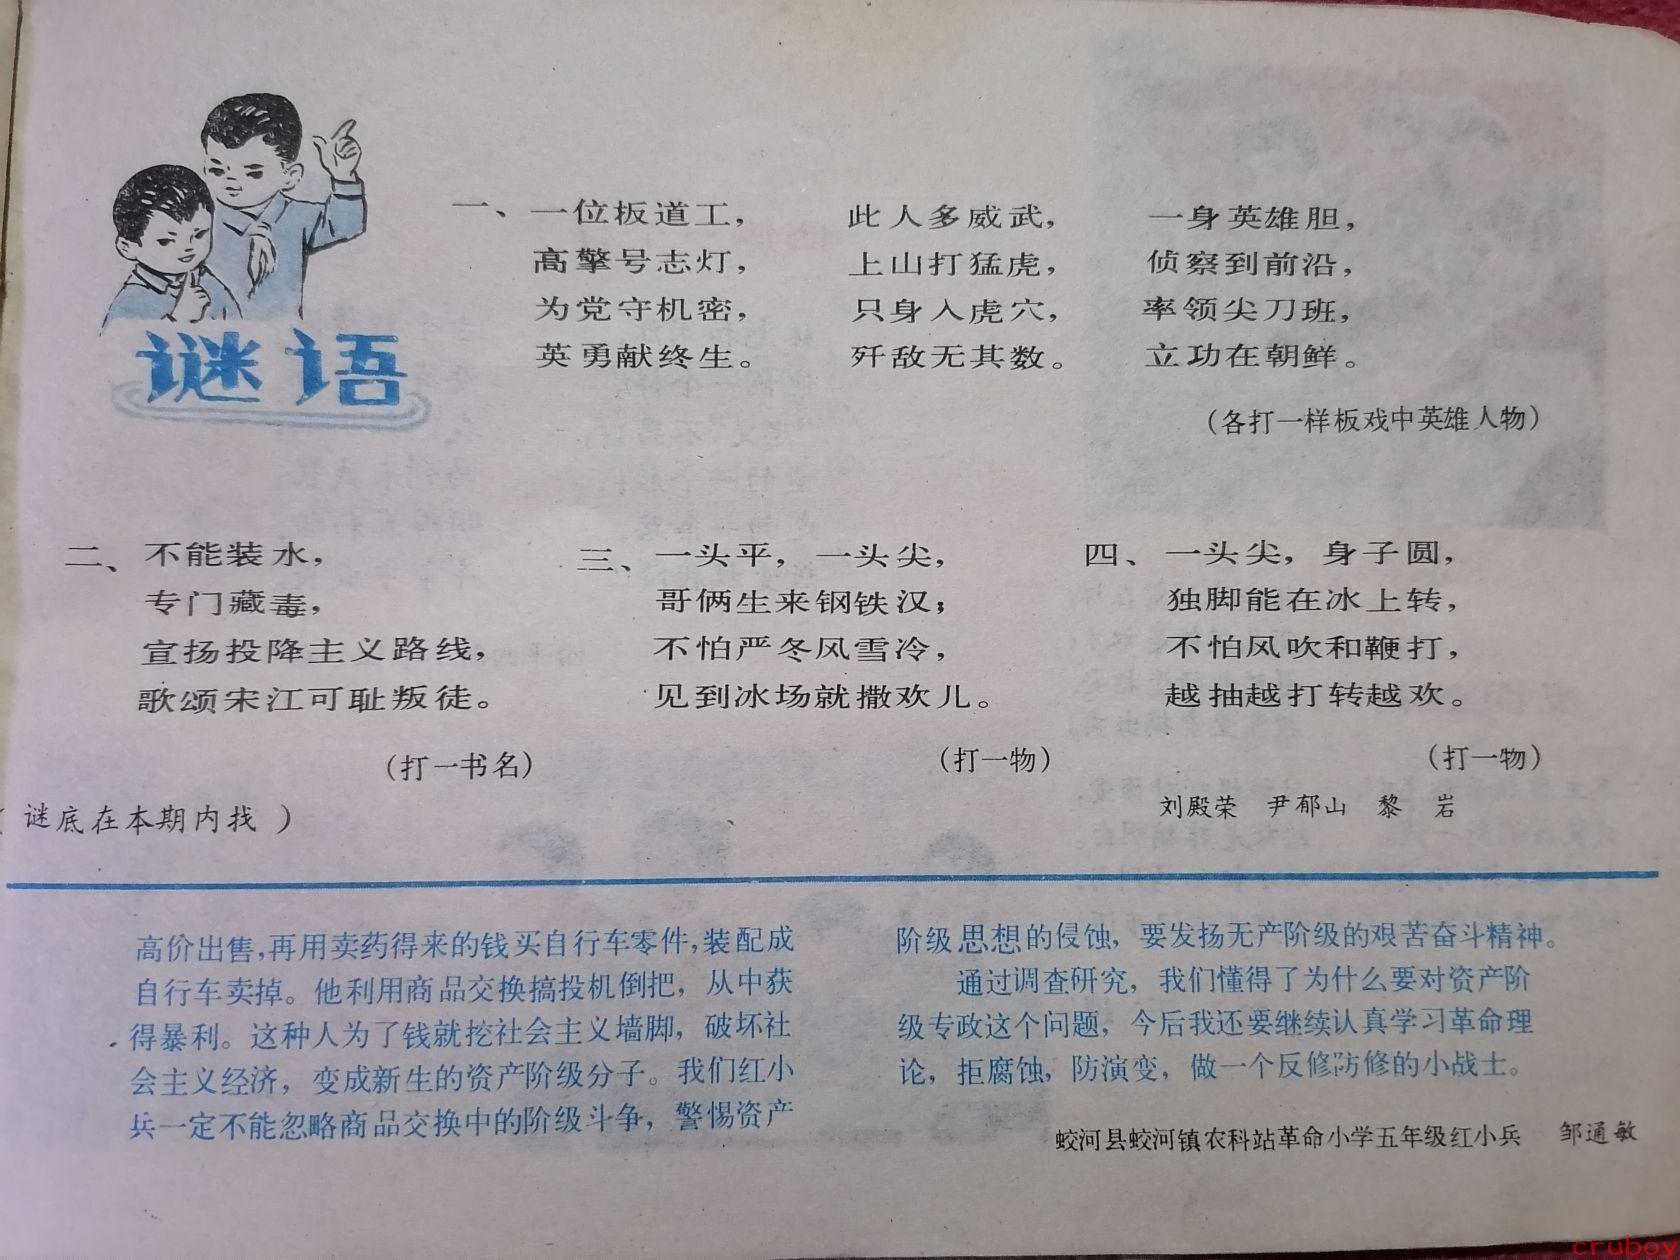 谜语
一、一位板道工，
高擎号志灯，
为党守机密，
英勇献终生。
此人多威武，
上山打猛虎，
只身入虎穴，
歼敌无其数。
一身英雄胆，
侦察到前沿，
率领尖刀班，
立功在朝鲜。
（各打一样板戏中英雄人物）
二、不能装水，
专门藏毒，
宣扬投降主义路线，
歌颂宋江可耻叛徒。
（打一书名）
三、一头平，一头尖，
哥俩生来钢铁汉；
不怕严冬风雪冷，
见到冰场就撒欢儿。
（打一物）
四、一头尖，身子圆，
独脚能在冰上转，
不怕风吹和鞭打，
越抽越打转越欢。
（打一物）
刘殿荣 尹郁山 黎 岩
（谜底在本期内找）
高价出售，再用卖药得来的钱买自行车零件，装配成
自行车卖掉。他利用商品交换搞投机倒把，从中获
得暴利。这种人为了钱就挖社会主义墙脚，破坏社
会主义经济，变成新生的资产阶级分子。我们红小
兵一定不能忽略商品交换中的阶级斗争，警惕资产
阶级思想的侵蚀，要发扬无产阶级的艰苦奋斗精神。
通过调查研究，我们懂得了为什么要对资产阶
级专政这个问题，今后我还要继续认真学习革命理
论，拒腐蚀，防演变，做一个反修防修的小战士。
蛟河县蛟河镇农科站革命小学五年级红小兵 邹通敏
cruboy